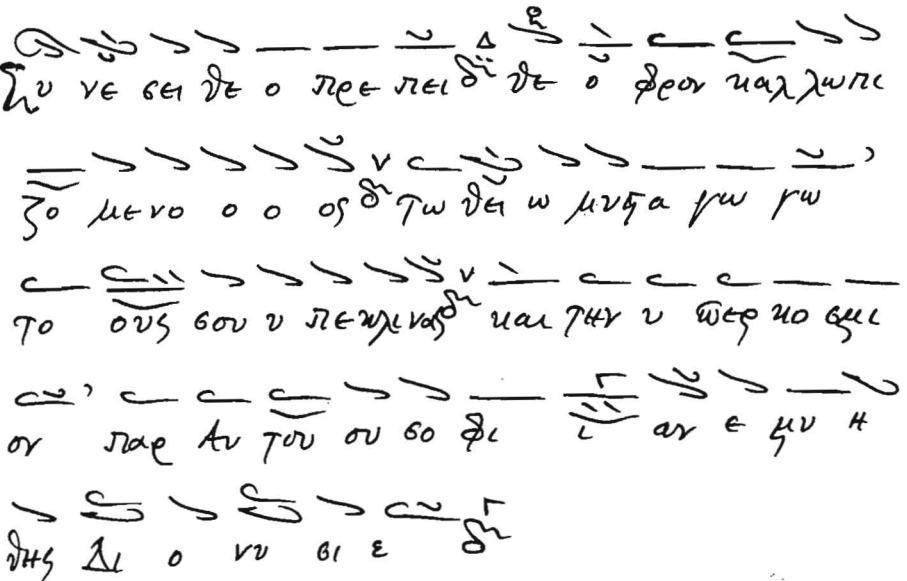 Συ νε σει θε ο πρε πει θε ο φρον καλ λωπι
ζο με νο ο ο ος τω θει ω μυστα γω γω
το ους σου υ πε κλι νας και την υ περ κο σμι
ον παρ Αυ του ου σο φι ι αν ε μυ η
θης Δι ο νυ σι ε